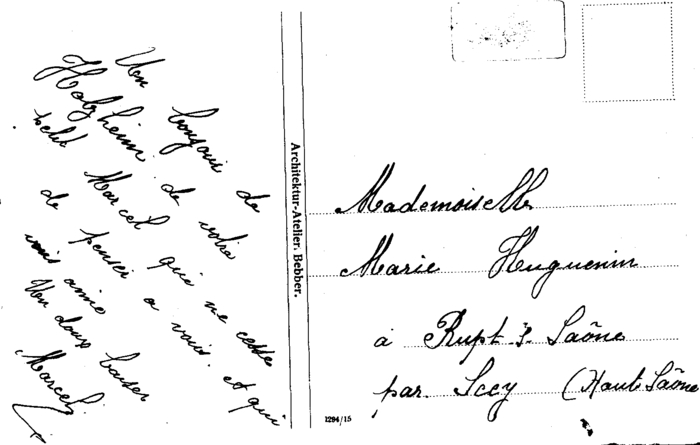 Un bonjour de
Holzheim de votre
petit Marcel qui ne cesse
de penser a vous. et qui
vous aime
Un doux baiser
Marcel
Architektur-Atelier. Bebber.
1294/15
Mademoiselle
Marie Huguenin
à Rupt s. Saône
par. Scey (Haute Saône